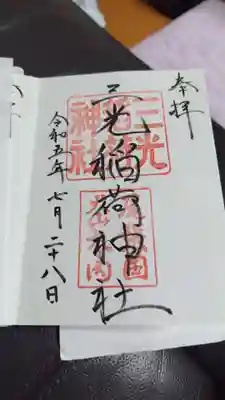 奉拝
三光稲荷神社
三光稲荷神社
令和五年七月二十八日